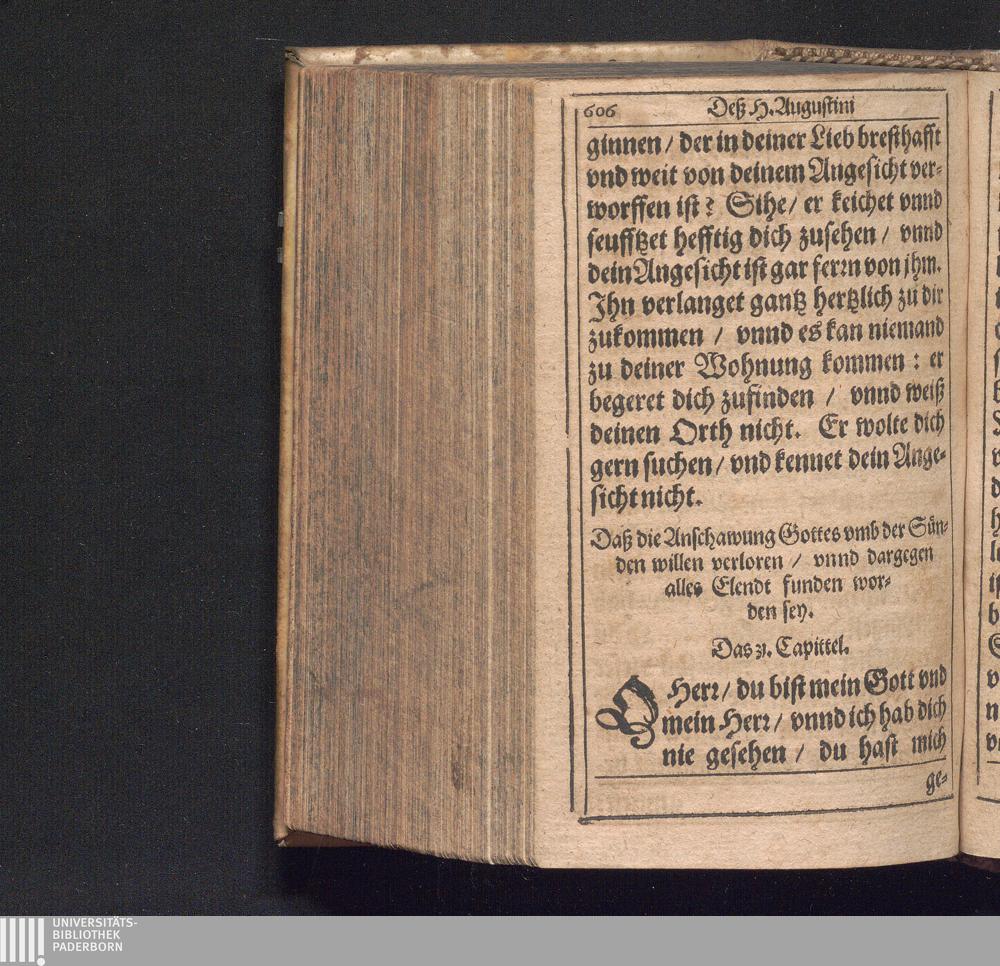 606 Deß H. Augustini
ginnen / der in deiner Lieb bresthafft
vnd weit von deinem Angesicht ver-
worffen ist? Sihe / er keichet vnnd
seufftzet hefftig dich zusehen / vnnd
dein Angesicht ist gar ferrn von jhm.
Ihn verlanget gantz hertzlich zu dir
zukommen / vnnd es kan niemand
zu deiner Wohnung kommen : er
begeret dich zufinden / vnnd weiß
deinen Orth nicht. Er wolte dich
gern suchen / vnd kennet dein Ange-
sicht nicht.
Daß die Anschawung Gottes vmb der Sün-
den willen verloren / vnnd dargegen
alles Elendt funden wor-
den sey.
Das 31. Capittel.
O Herr / du bist mein Gott vnd
mein Herr / vnnd ich hab dich
nie gesehen / du hast mich
ge-
UNIVERSITÄTS-
BIBLIOTHEK
PADERBORN